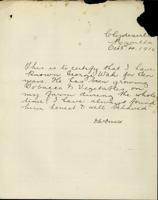 Clydesvale
Oct 5th 1916
This is to certify that I have
known George Wah for ten
years. He has been growing
Tobacco & Vegetables on
my Farm during the whole
time. I have always found
him honest & well behaved